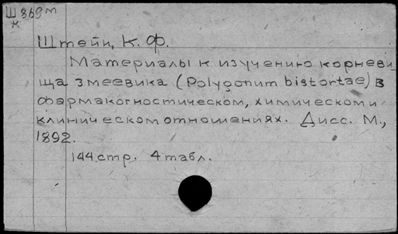 Ш 869 м
к
Штейн, К. Ф.
Материалы к изучению корневи
ща змеевика (Polygonum bistortae) в
фармакогностическом, химическом и
клиническом отношениях. Дисс. М.,
1892.
144 стр. 4 табл.